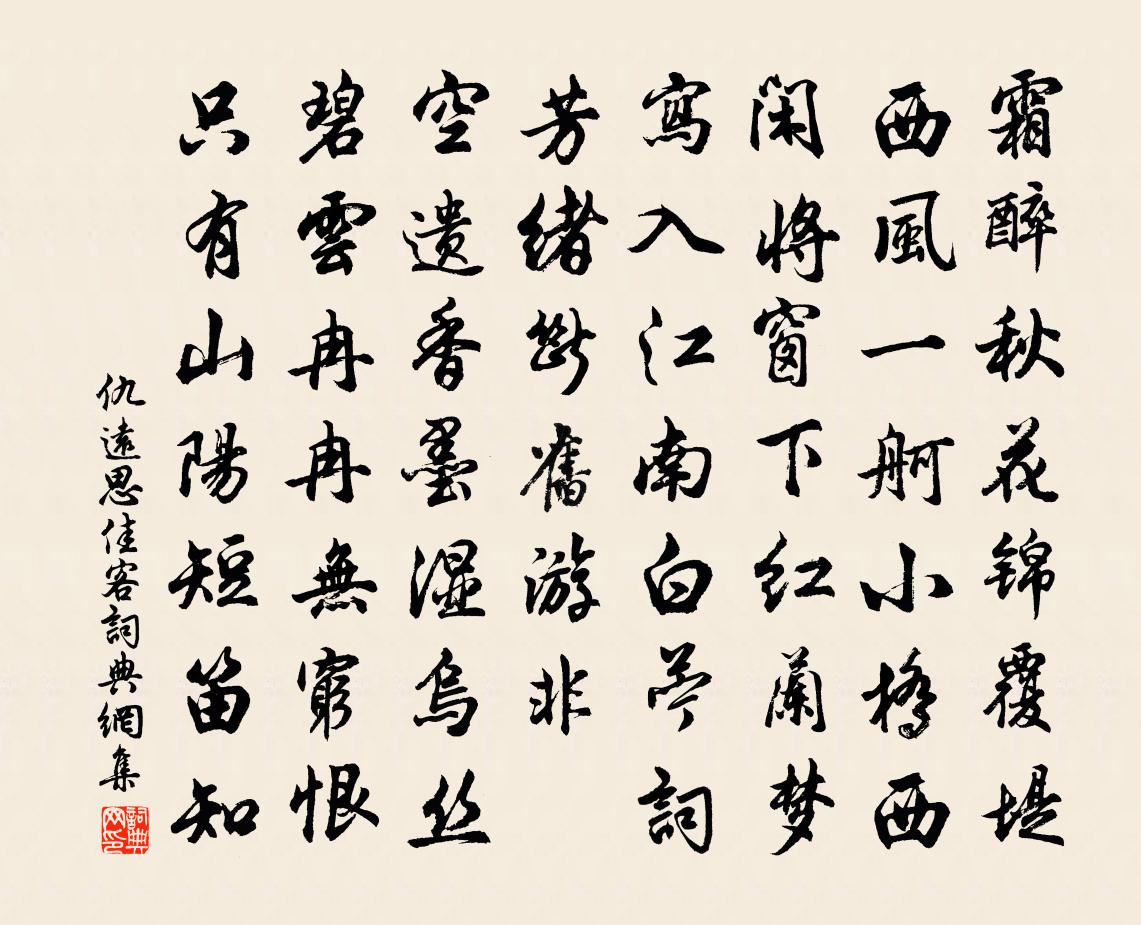 霜醉秋花锦覆堤
西風一舸小橋西
閑將窗下紅蘭梦
寫入江南白苧詞
芳緒斷舊游非
空遺香墨湿烏丝
碧雲冉冉無窮恨
只有山陽短笛知
仇遠思佳客詞典網集
詞典网印